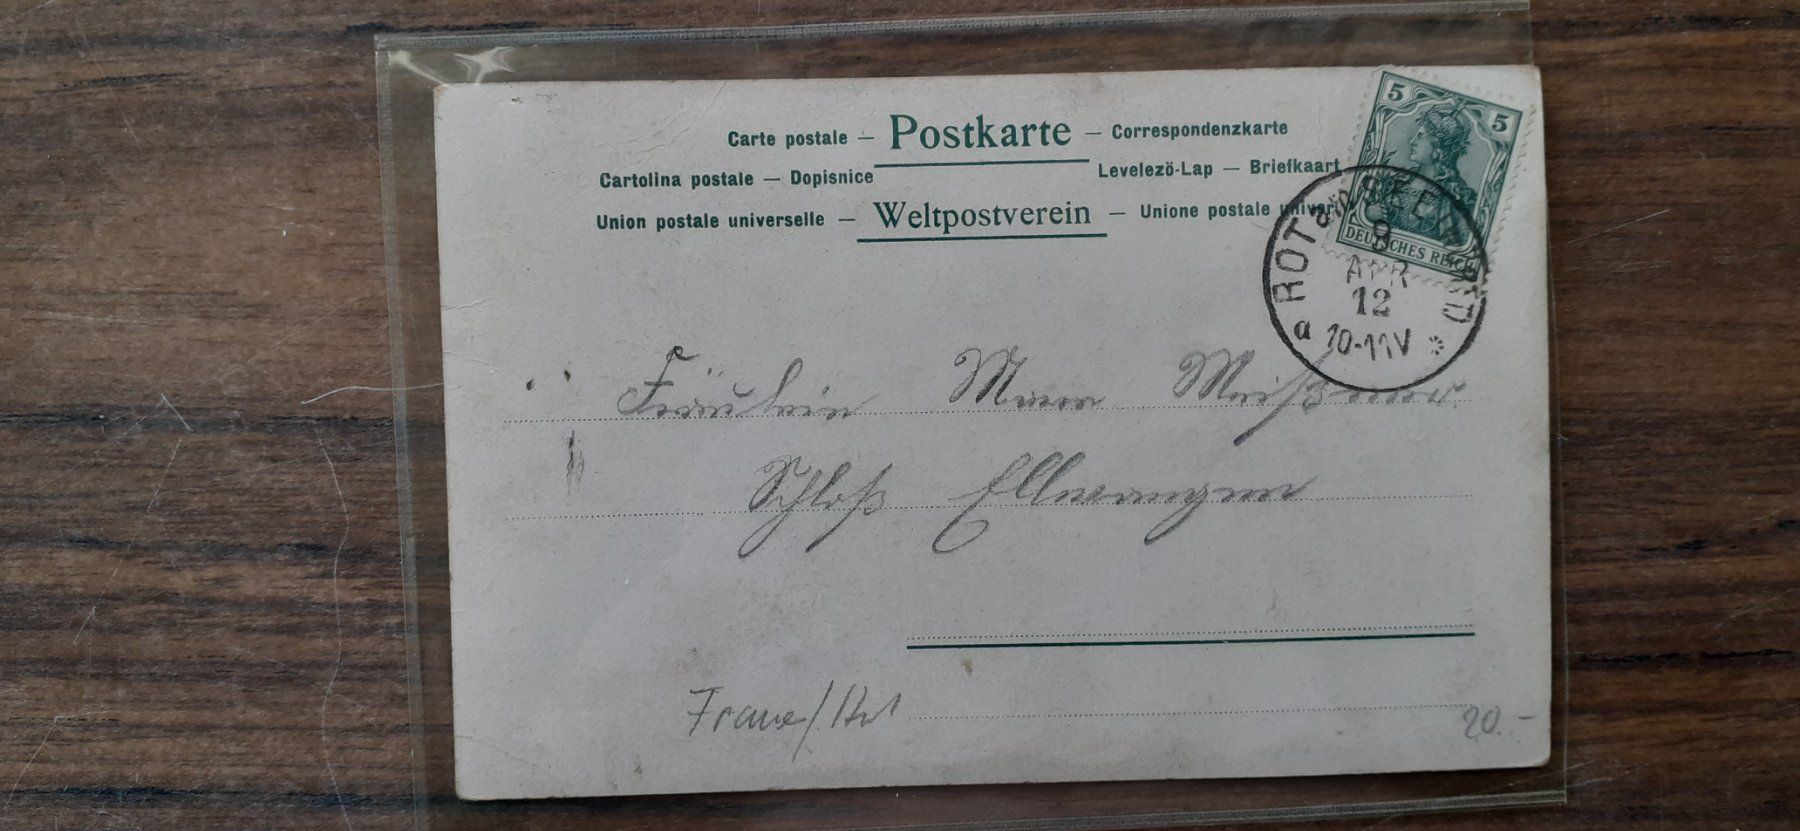 Carte postale — Postkarte — Correspondenzkarte
Cartolina postale — Dopisnice Levelezö-Lap — Briefkaart
Union postale universelle — Weltpostverein — Unione postale univer
5 5
DEUTSCHES REICH
ROT a/d SEE
9
APR
12
10-11V
a *
Fräulein Meißner
Schloß Ellwangen
20.-